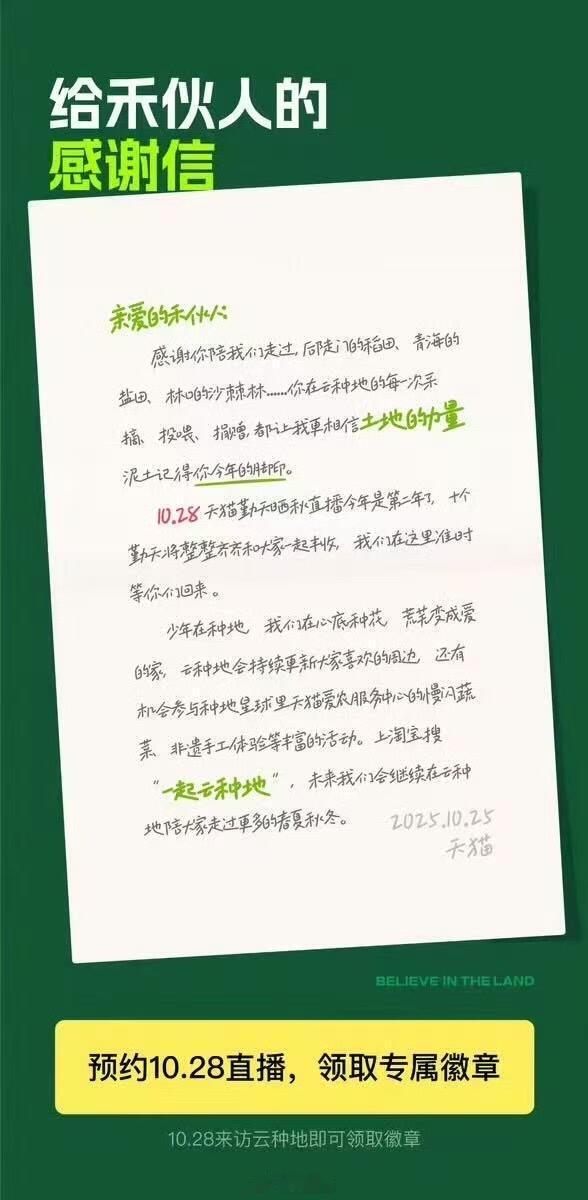 给禾伙人的
感谢信
亲爱的禾伙人:
感谢你陪我们走过,后陡门的稻田、青海的
盐田、林口的沙棘林……你在云种地的每一次采
摘、投喂、捐赠,都让我更相信土地的力量
泥土记得你今年的脚印。
10.28 天猫勤天晒秋直播今年是第二年了,十个
勤天将整整齐齐和大家一起丰收,我们在这里准时
等你们回来。
少年在种地,我们在心底种花,荒芜变成爱
的家,云种地会持续更新大家喜欢的周边,还有
机会参与种地星球里天猫爱农服务中心的慢闪蔬
菜、非遗手工体验等丰富的活动。上淘宝搜
“一起云种地”,未来我们会继续在云种
地陪大家走过更多的春夏秋冬。
2025.10.25
天猫
BELIEVE IN THE LAND
预约10.28直播,领取专属徽章
10.28来访云种地即可领取徽章